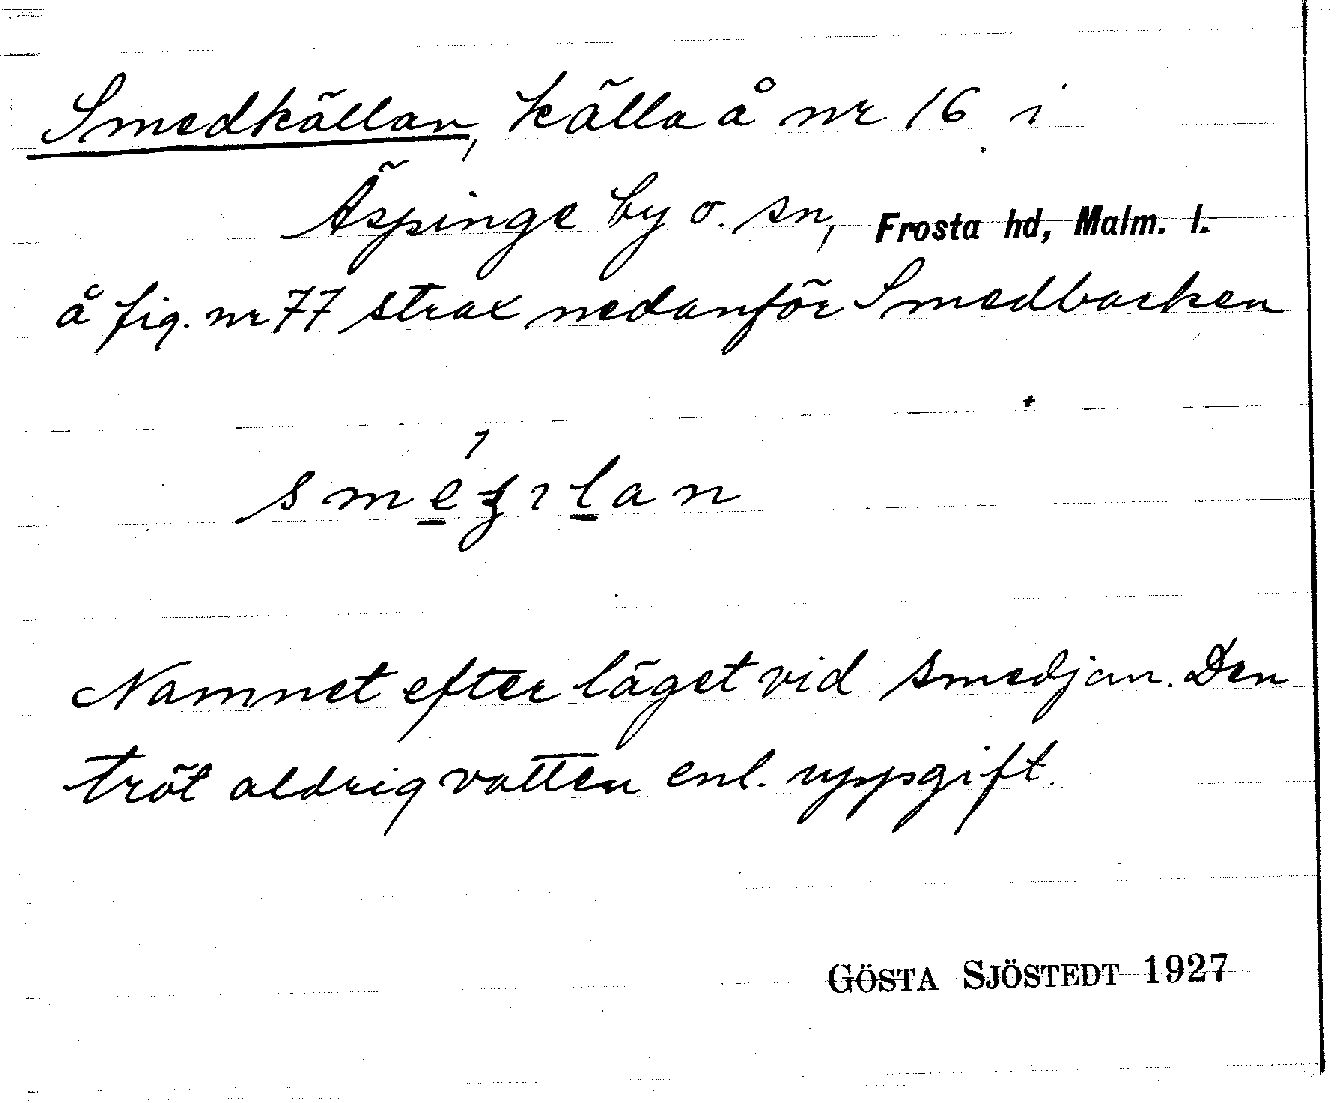 Smedkällan, källa å nr 16 i
Äspinge by o. sn, Frosta hd, Malm. l.
å fig. nr 77 strax nedanför Smedbacken
Namnet efter läget vid smedjan. Den
tröt aldrig vatten enl. uppgift.
GÖSTA SJÖSTEDT 1927